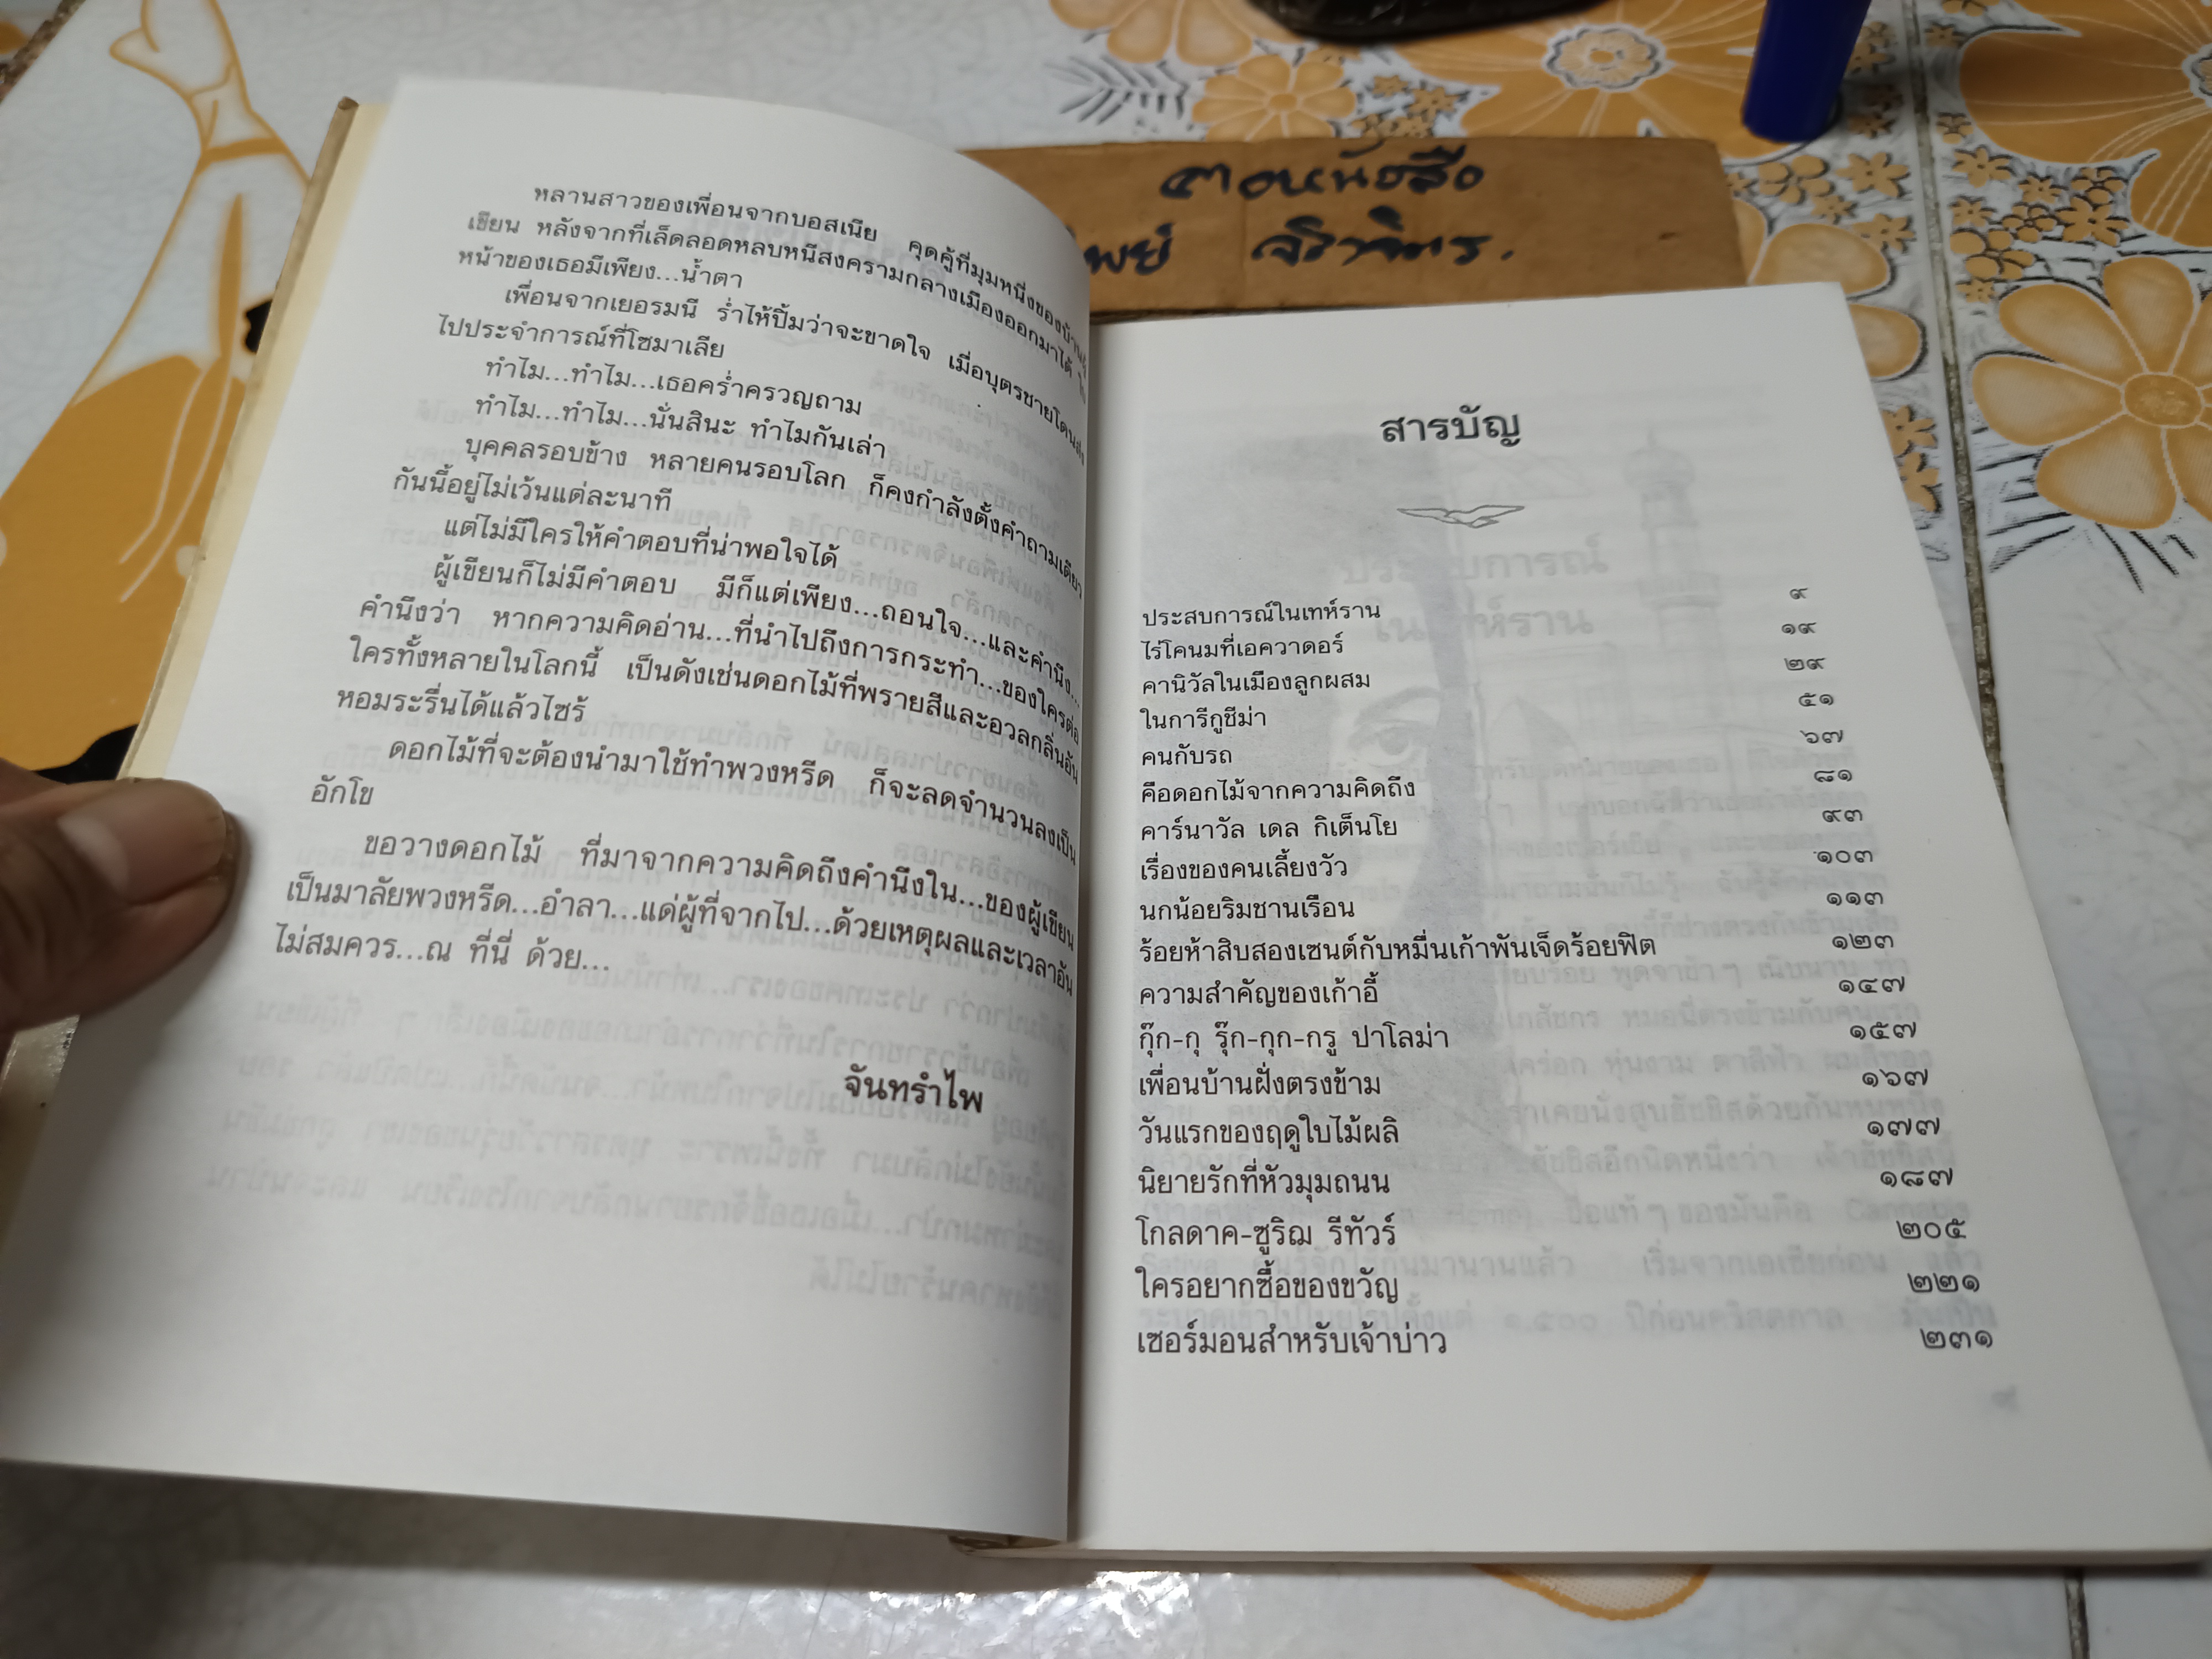 หลานสาวของเพื่อนจากบอสเนีย คุดคู้ที่มุมหนึ่งของบ้าน
เขียน หลังจากที่เล็ดลอดหลบหนีสงครามกลางเมืองออกมาได้ ใน
หน้าของเธอมีเพียง...น้ำตา
เพื่อนจากเยอรมนี ร่ำไห้ปิ้มว่าจะขาดใจ เมื่อบุตรชายโดนส่ง
ไปประจำการณ์ที่โซมาเลีย
ทำไม...ทำไม...เธอคร่ำครวญถาม
ทำไม...ทำไม...นั่นสินะ ทำไมกันเล่า
บุคคลรอบข้าง หลายคนรอบโลก ก็คงกำลังตั้งคำถามเดียว
กันนี้อยู่ไม่เว้นแต่ละนาที
แต่ไม่มีใครให้คำตอบที่น่าพอใจได้
ผู้เขียนก็ไม่มีคำตอบ มีก็แต่เพียง...ถอนใจ...และคำนึง...
คำนึงว่า หากความคิดอ่าน...ที่นำไปถึงการกระทำ...ของใครต่อ
ใครทั้งหลายในโลกนี้ เป็นดังเช่นดอกไม้ที่พรายสีและอวลกลิ่นอัน
หอมระรื่นได้แล้วไซร้
ดอกไม้ที่จะต้องนำมาใช้ทำพวงหรีด ก็จะลดจำนวนลงเป็น
อักโข
ขอวางดอกไม้ ที่มาจากความคิดถึงคำนึงใน...ของผู้เขียน
เป็นมาลัยพวงหรีด...อำลา...แด่ผู้ที่จากไป...ด้วยเหตุผลและเวลาอัน
ไม่สมควร...ณ ที่นี่ ด้วย...
จันทรำไพ
หนังสือ
สารบัญ
ประสบการณ์ในเทห์ราน ๙
ไร่โคนมที่เอควาดอร์ ๑๙
คานิวัลในเมืองลูกผสม ๒๙
ในการีกูชีม่า ๕๑
คนกับรถ ๖๗
คือดอกไม้จากความคิดถึง ๘๑
คาร์นาวัล เดล กิเต็นโย ๙๓
เรื่องของคนเลี้ยงวัว ๑๐๓
นกน้อยริมชานเรือน ๑๑๓
ร้อยห้าสิบสองเซนต์กับหมื่นเก้าพันเจ็ดร้อยฟิต ๑๒๓
ความสำคัญของเก้าอี้ ๑๔๗
กุ๊ก-กุ รุ๊ก-กุก-กรู ปาโลม่า ๑๕๗
เพื่อนบ้านฝั่งตรงข้าม ๑๖๗
วันแรกของฤดูใบไม้ผลิ ๑๗๗
นิยายรักที่หัวมุมถนน ๑๘๗
โกลดาค-ซูริฌ รีทัวร์ ๒๐๕
ใครอยากซื้อของขวัญ ๒๒๑
เซอร์มอนสำหรับเจ้าบ่าว ๒๓๑